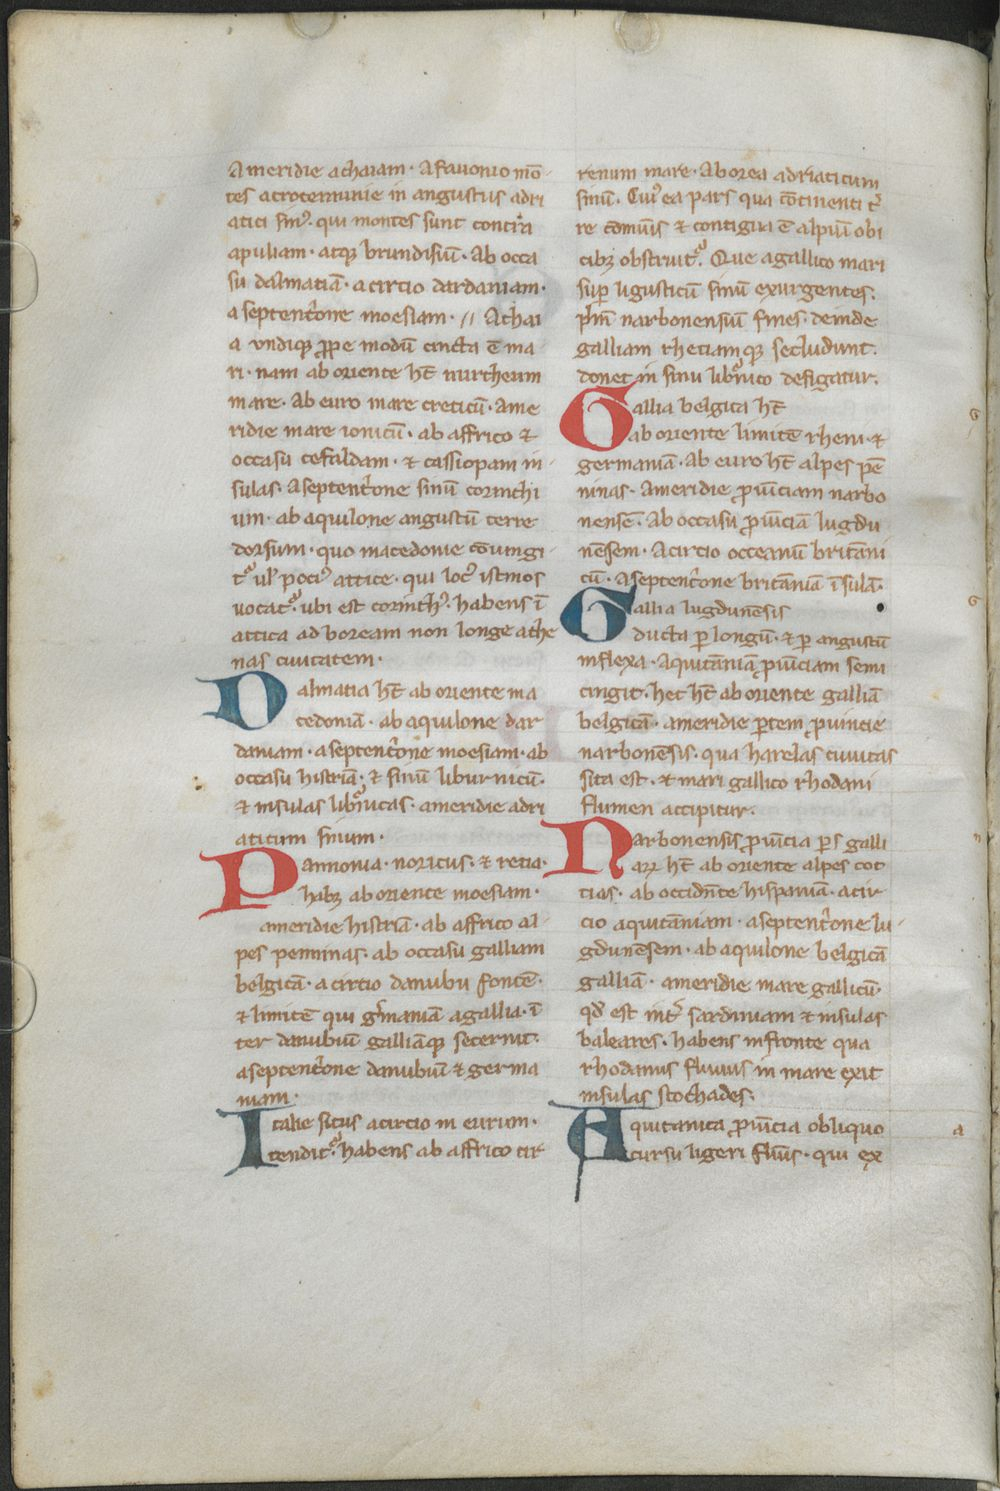 A meridie achaiam · A fauonio mō-
tes acroterunie in angustiis adri
atici sin⁹. qui montes sunt contra
apuliam · atq; brundisiū · Ab occa
su dalmatiā · a circio dardaniam ·
a septent͛one moesiam · // Achai
a vndiq; ꝓpe modū cincta ē ma-
ri · nam ab oriente hт̄ mirtheum
mare · Ab euro mare creticū · Ame
ridie mare ionicū · ab affrico ⁊
occasu cefaldam · ⁊ cassiopam in-
sulas · A septent͛one sinū corinthi
um · ab aquilone angustū terre
dorsum · quo macedonie cōiungi-
tᷣ ul̓ poci⁹ attice · qui loc⁹ istmos
uocatᷣ. ubi est corinth⁹. habens ī
attica ad boream non longe athe
nas ciuitatem ·
Dalmatia hт̄ ab oriente ma
cedoniā · ab aquilone dar
daniam · a septent͛one moesiam · ab
occasu histriā · ⁊ sinū liburnicū ·
⁊ insulas libᷣnicas · ameridie adri
aticum sinum ·
Pannonia · noricus · ⁊ retia ·
habꝫ ab oriente moesiam ·
ameridie histriā · ab affrico al-
pes penninas · ab occasu galliam
belgicā · a circio danubii fontē ·
⁊ limitē qui g͛maniā a gallia · ī
ter danubiū galliāq; secernit ·
a septent͛one danubiū ⁊ germa
niam ·
Italie situs a circio in eurum ·
tenditᷣ. habens ab affrico tir
renum mare · Ab orea adriaticum
sinū · Cui⁹ ea pars qua cōtinenti t͛
re cōmūis ⁊ contigua ē alpiū obi
cibꝫ obstruitᷣ. Que a gallico mari
suꝑ ligusticū sinū exurgentes ·
p͛m̄ narbonensiū fines · deinde
galliam rhetiamq; secludunt ·
donec in sinu libᷣnico defigatur ·
Gallia belgica hт̄
ab oriente limitē rheni · ⁊
germaniā · Ab euro hт̄ alpes pē
ninas · Ameridie ꝓuīciam narbo
nensē · Ab occasu ꝓuīciā lugdu
nēsem · A circio occeanū britāni
cū · A septent͛one britāniā īsulā ·
Gallia lugdunēsis
ducta ꝑ longū · ⁊ ꝑ angustū
inflexa · Aquitāniā ꝓuīciam semi
cingit · hec hт̄ ab oriente galliā
belgicā · ameridie ꝑtem ꝓuincie
narbonēsis · qua harelas ciuitas
sita est · ⁊ mari gallico rhodani
flumen accipitur ·
Narbonensis ꝓuīcia ꝑs galli
aꝝ hт̄ ab oriente alpes cot
tias · ab occidn̄te hispaniā · a cir-
cio aquitāniam · a septent͛one lu-
gdunēsem · ab aquilone belgicā
galliā · ameridie mare gallicū ·
qd̓ est int͛ sardiniam ⁊ insulas
baleares · habens in fronte qua
rhodanus fluuius in mare exit
insulas stochades ·
Aquitanica ꝓuīcia obliquo
cursu ligeri flūs · qui ex
G
G
n
a